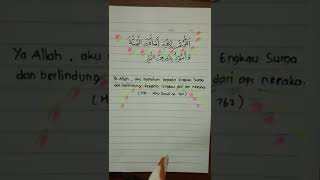 اللَّهُمَّ إِنِّي أَسْأَلُكَ الْجَنَّةَ
وَأَعُوذُ بِكَ مِنَ النَّارِ
Ya Allah, aku memohon kepada Engkau Surga
dan berlindung kepada Engkau dari api neraka.
(HR. Abu Daud no. 792)